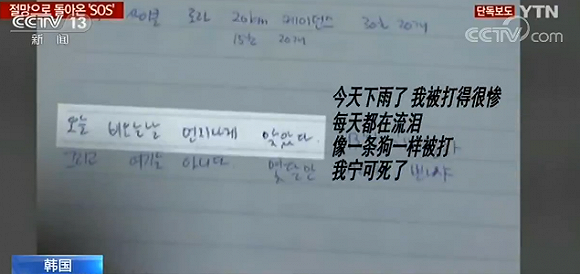 절망으로 돌아온 'SOS'
CCTV 13
新闻
단독보도 YTN
CCTV.com
사이클 로라 20km 케이던스 30초 20개
15초 20개
오늘 비오는날 먼지나게 맞았다.
그리고 여기는 아니다 몇달만
今天下雨了 我被打得很惨
每天都在流泪
像一条狗一样被打
我宁可死了
韩国